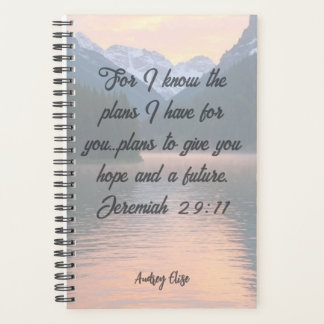 For I know the
plans I have for
you..plans to give you
hope and a future.
Jeremiah 29:11
Audrey Elise